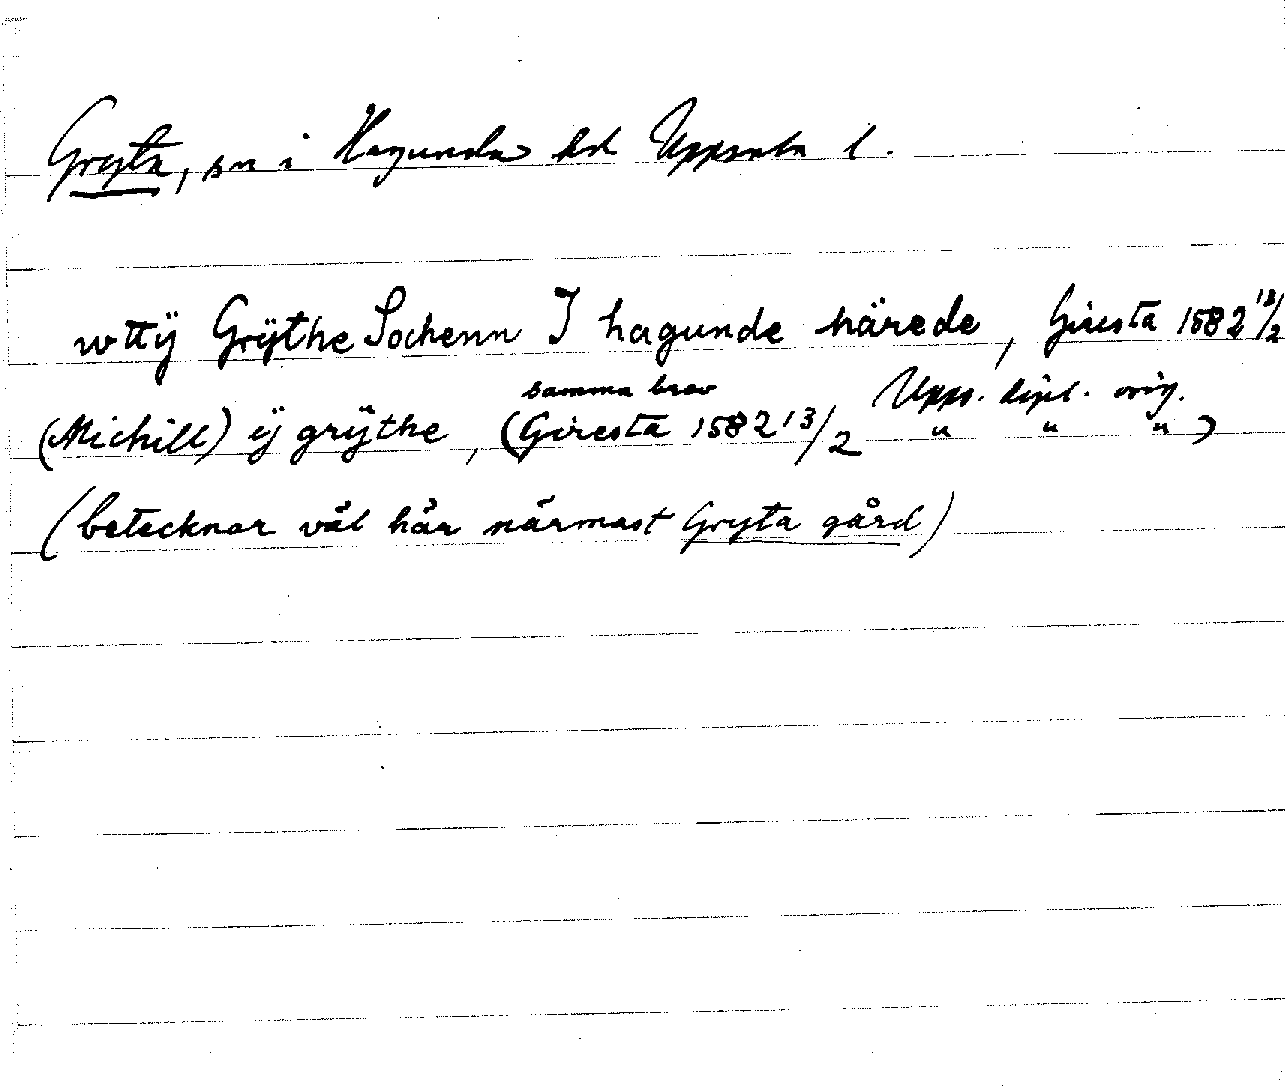 Gryta, sn i Hagunda hd Uppsala l.
wttÿ Grÿthe Sochenn I hagunde härede, Giresta 1582 13/2
Upps. dipl. orig.
samma brev
(Michill) ÿ grÿthe, (Giresta 1582 13/2 " " ")
(betecknar väl här närmast Gryta gård)